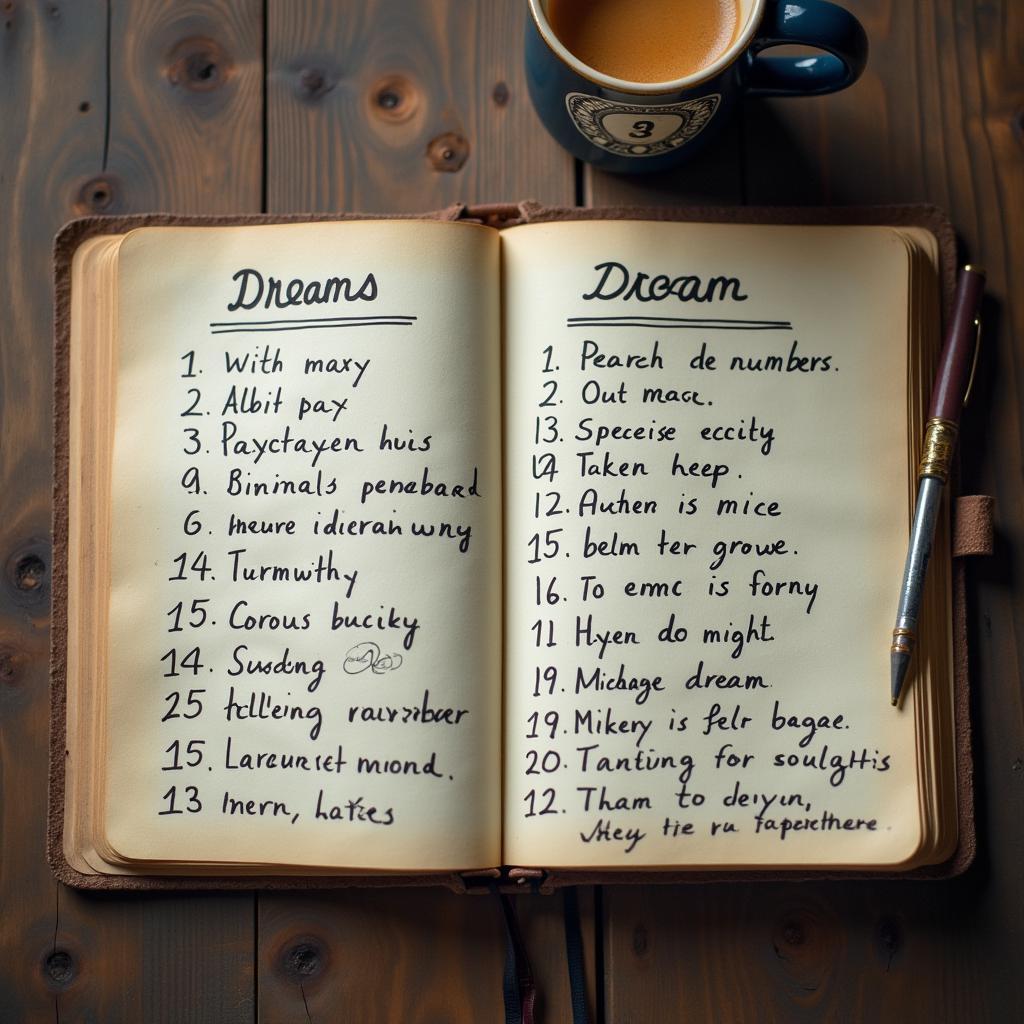 3
Dreams
1. With maxy
2. Albit pay
3. Payctayen huis
9. Binimals penabaad
6. Ineure idierain wny
14. Turmwthy
15. Corous buciky
14. Susdng
25 tclleing
15. Lareunset mond.
13 Inern, hatces
Dream
1. Pearch de numbers.
2. Out macc.
13. Speceise eccity
14 Taken heep.
12. Authen is mice
15. belm ter growe.
16. To emc is forny
11 Hyen do might
19. Michage dream.
19. Mikery is felr bagae.
20. Tantung for soulgHis
12. Tham to deiyın,
they tie ru